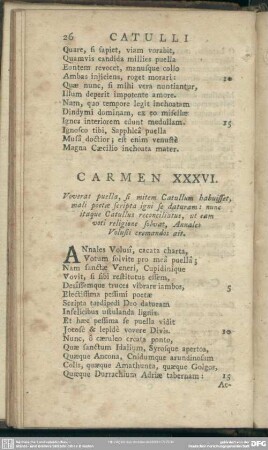 26 CATULLI
Quare, si sapiet, viam vorabit,
Quamvis candida millies puella
Euntem revocet, manusque collo
Ambas injiciens, roget morari: 10
Quæ nunc, si mihi vera nuntiantur,
Illum deperit impotente amore.
Nam, quo tempore legit inchoatam
Dindymi dominam, ex eo misellæ
Ignes interiorem edunt medullam. 15
Ignosco tibi, Sapphicâ puella
Musâ doctior; est enim venustè
Magna Cæcilio inchoata mater.
CARMEN XXXVI.
Voverat puella, si mitem Catullum habuisset,
mali poetæ scripta igni se daturam: nunc
itaque Catullus reconciliatus, ut eam
voti religione solvat, Annales
Volusii cremandos ait.
ANnales Volusî, cacata charta,
Votum solvite pro meâ puellâ;
Nam sanctæ Veneri, Cupidinique
Vovit, si sibi restitutus essem,
Desîssemque truces vibrare iambos, 5
Electissima pessimi poetæ
Scripta tardipedi Deo daturam
Infelicibus ustulanda lignis.
Et hæc pessima se puella vidit
Jocosè & lepidè vovere Divis. 10
Nunc, ô cæruleo creata ponto,
Quæ sanctum Idalium, Syrosque apertos,
Quæque Ancona, Cnidumque arundinosam
Colis, quæque Amathunta, quæque Golgos,
Quæque Durrachium Adriæ tabernam: 15
Ac-